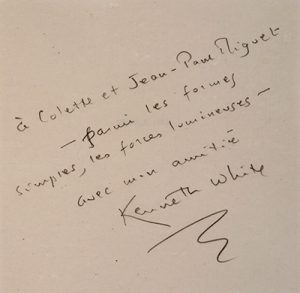 à Colette et Jean-Paul Miguet
— parmi les formes
simples, les forces lumineuses —
avec mon amitié
Kenneth White